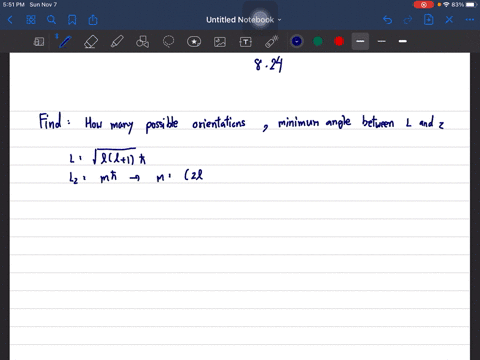 5:51 PM Sun Nov 7
83%
Untitled Notebook
8.24
Find: How many possible orientations, minimum angle between L and z
L = √l(l+1) ħ
Lz = mħ → n: (2l